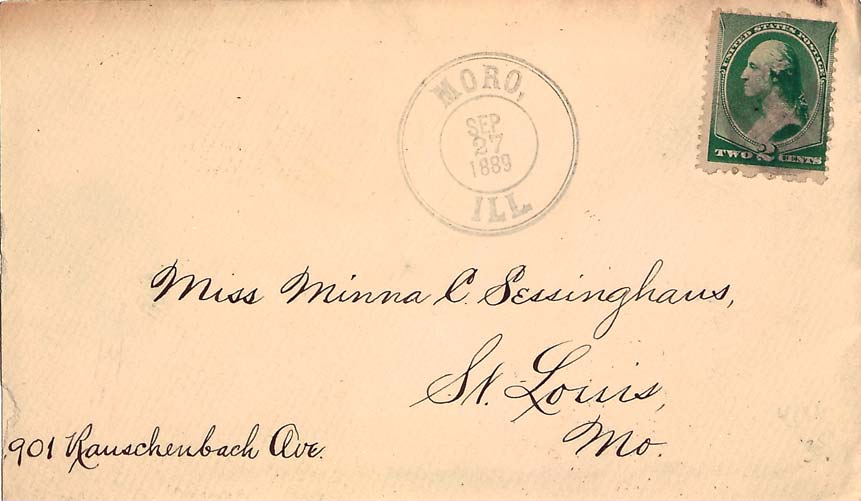 UNITED STATES POSTAGE
TWO 2 CENTS
MORO,
SEP
27
1889
ILL
Miss Minna C. Sessinghaus,
St. Louis,
Mo.
901 Rauschenbach Ave.